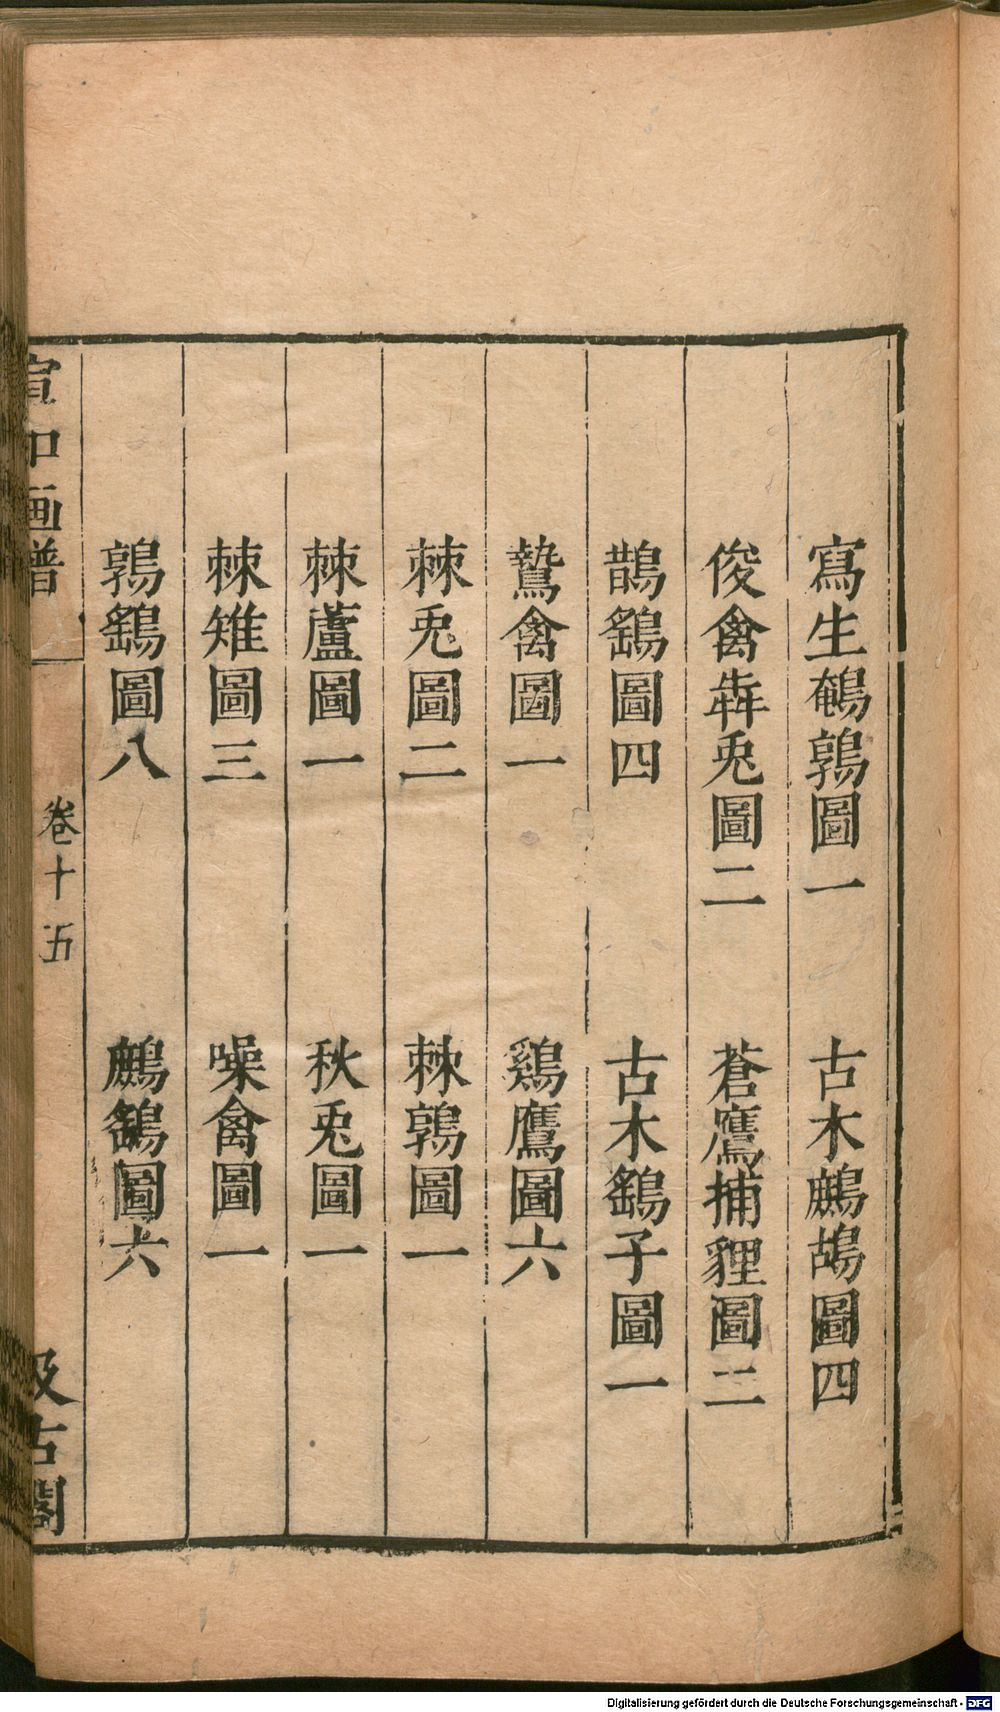 寫生鵪鶉圖一　古木鷓鴣圖四
俊禽犇兎圖二　蒼鷹捕貍圖二
鵲鷂圖四　古木鷂子圖一
鷙禽圖一　鷄鷹圖六
棘兎圖二　棘鶉圖一
棘蘆圖一　秋兎圖一
棘雉圖三　噪禽圖一
鶉鷂圖八　鷓鷂圖六
宣和画譜　卷十五　汲古閣
Digitalisierung gefördert durch die Deutsche Forschungsgemeinschaft - DFG